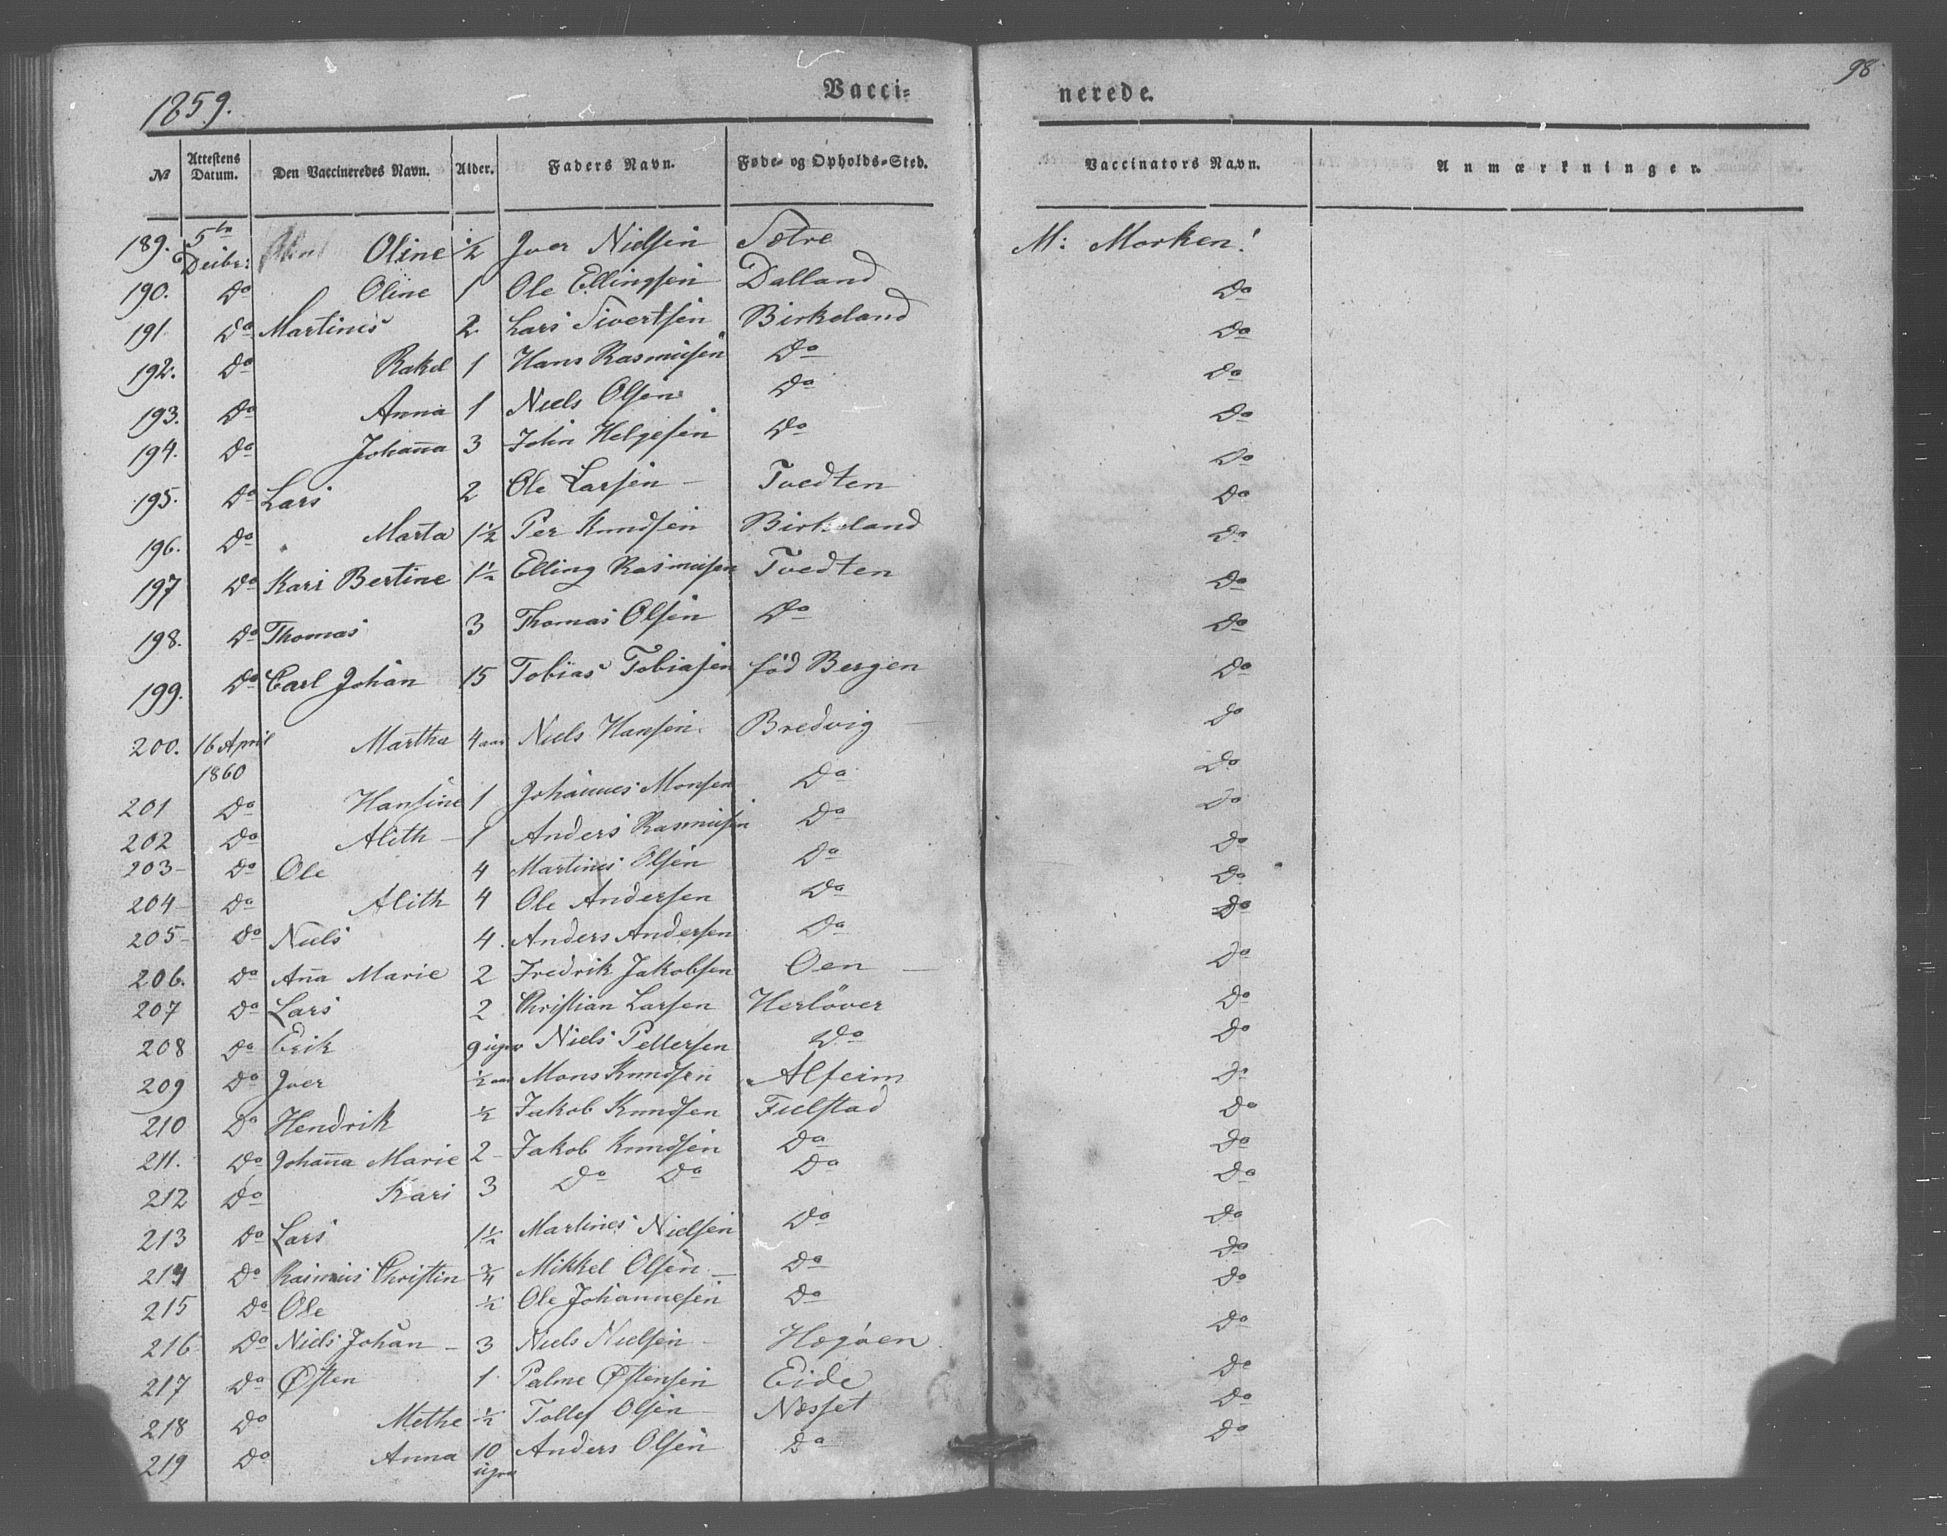 1859.
Vacci-
nerede.
98
№ Attestens Datum. Den Vaccineredes Navn. Alder. Faders Navn. Føde- og Opholds-Sted. Vaccinators Navn. Anmærkninger.
189. 5te Decbr: Oline ½ Iver Nielsen Sætre M: Morken!
190. Do Oline 1 Ole Ellingsen Dalland Do
191. Do Martines 2 Lars Sivertsen Birkeland Do
192. Do Rakel 1 Hans Rasmusen Do Do
193. Do Anna 1 Niels Olsen Do Do
194. Do Johan̄a 3 John Helgesen Do Do
195. Do Lars 2 Ole Larsen - Tvedten Do
196. Do Marta 1½ Per Knudsen Birkeland Do
197 Do Kari Bertine 1½ Elling Rasmusen Tvedten Do
198. Do Thomas 3 Thomas Olsen Do Do
199. Do Carl Johan 15 Tobias Tobiasen fód Bergen Do
200. 16 April 1860 Martha 4 aar Niels Hansen. Bredvig - Do
201 Do Hansine 1 Johannes Monsen Do Do
202 Do Alith - 1 Anders Rasmusen Do Do
203- Do Ole 4 Martines Olsen Do Do
204- Do Alith 4 Ole Andersen Do Do
205- Do Niels 4. Anders Andersen Do Do
206. Do An̄a Marie 2 Fredrik Jakobsen Oen - Do
207 Do Lars 2 Christian Larsen Herlöver Do
208 Do Erik 9 uger Niels Pettersen Do Do
209 Do Iver ½ aar Mons Knudsen Alfeim Do
210 Do Hendrik ½ Jakob Knudsen Fielstad Do
211. Do Johan̄a Marie 2- Jakob Knudsen Do Do
212 Do Kari 3 Do Do Do Do
213 Do Lars 1½ Martines Nielsen Do Do
214 Do Rasmus Christin ¾ Mikkel Olsen - Do Do
215 Do Ole ½ Ole Johannesen Do Do
216 Do Niels Johan - 3 Niels Nielsen - Hegøen Do
217 Do Østen 1 Palme Østensen Eide Do
218 Do Methe ½ Tollef Olsen Næsset Do
219 Do Anna 10 uger Anders Olsen Do Do